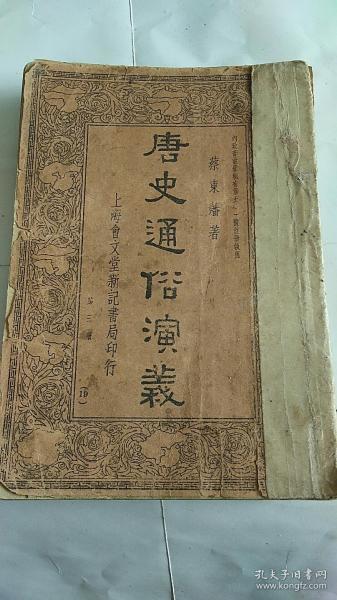 蔡東藩著
唐史通俗演義
上海會文堂新記書局印行
第三冊
(10)
孔夫子旧书网
www.kongfz.com